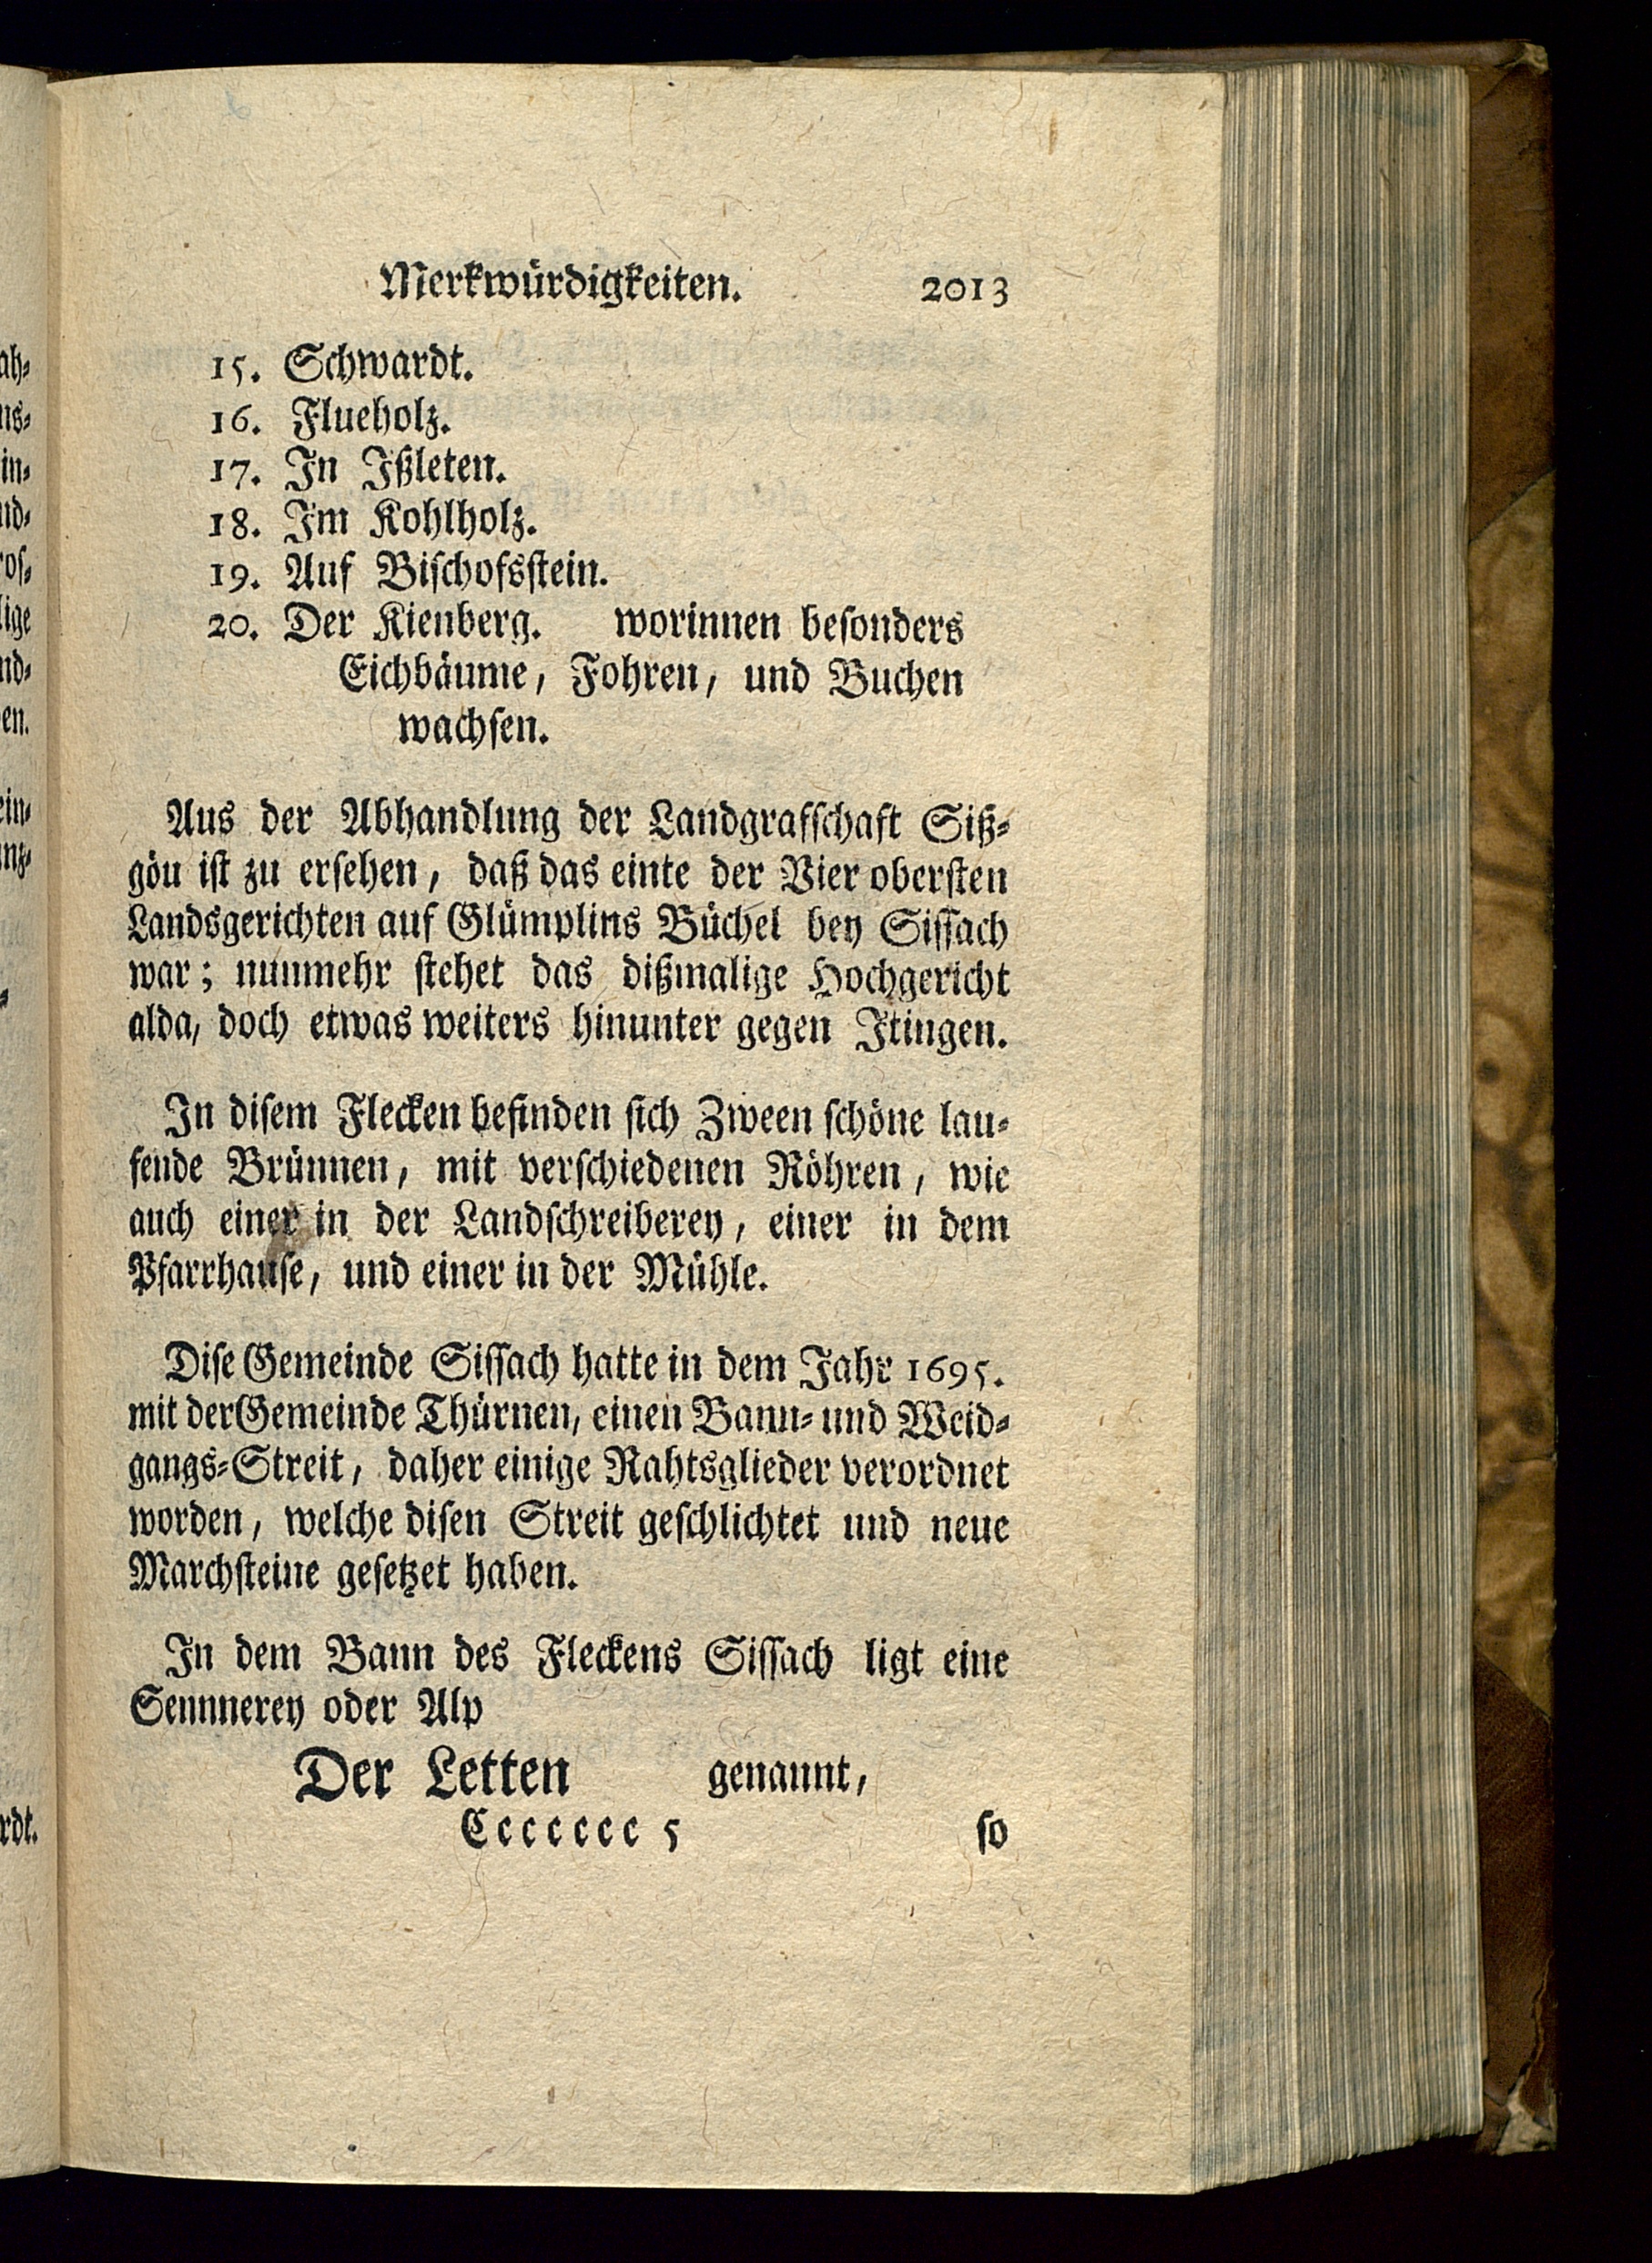 Merkwürdigkeiten. 2013
15. Schwardt.
16. Flueholz.
17. In Ißleten.
18. Im Kohlholz.
19. Auf Bischofsstein.
20. Der Kienberg. worinnen besonders
Eichbäume, Fohren, und Buchen
wachsen.
Aus der Abhandlung der Landgrafschaft Siß-
göu ist zu ersehen, daß das einte der Vier obersten
Landsgerichten auf Glümplins Büchel bey Sissach
war; nunmehr stehet das dißmalige Hochgericht
alda, doch etwas weiters hinunter gegen Itingen.
In disem Flecken befinden sich Zween schöne lau-
fende Brünnen, mit verschiedenen Röhren, wie
auch einer in der Landschreiberey, einer in dem
Pfarrhause, und einer in der Mühle.
Dise Gemeinde Sissach hatte in dem Jahr 1695.
mit der Gemeinde Thürnen, einen Bann- und Weid-
gangs-Streit, daher einige Rahtsglieder verordnet
worden, welche disen Streit geschlichtet und neue
Marchsteine gesetzet haben.
In dem Bann des Fleckens Sissach ligt eine
Sennnerey oder Alp
Der Letten genannt,
Ccccccc 5 so